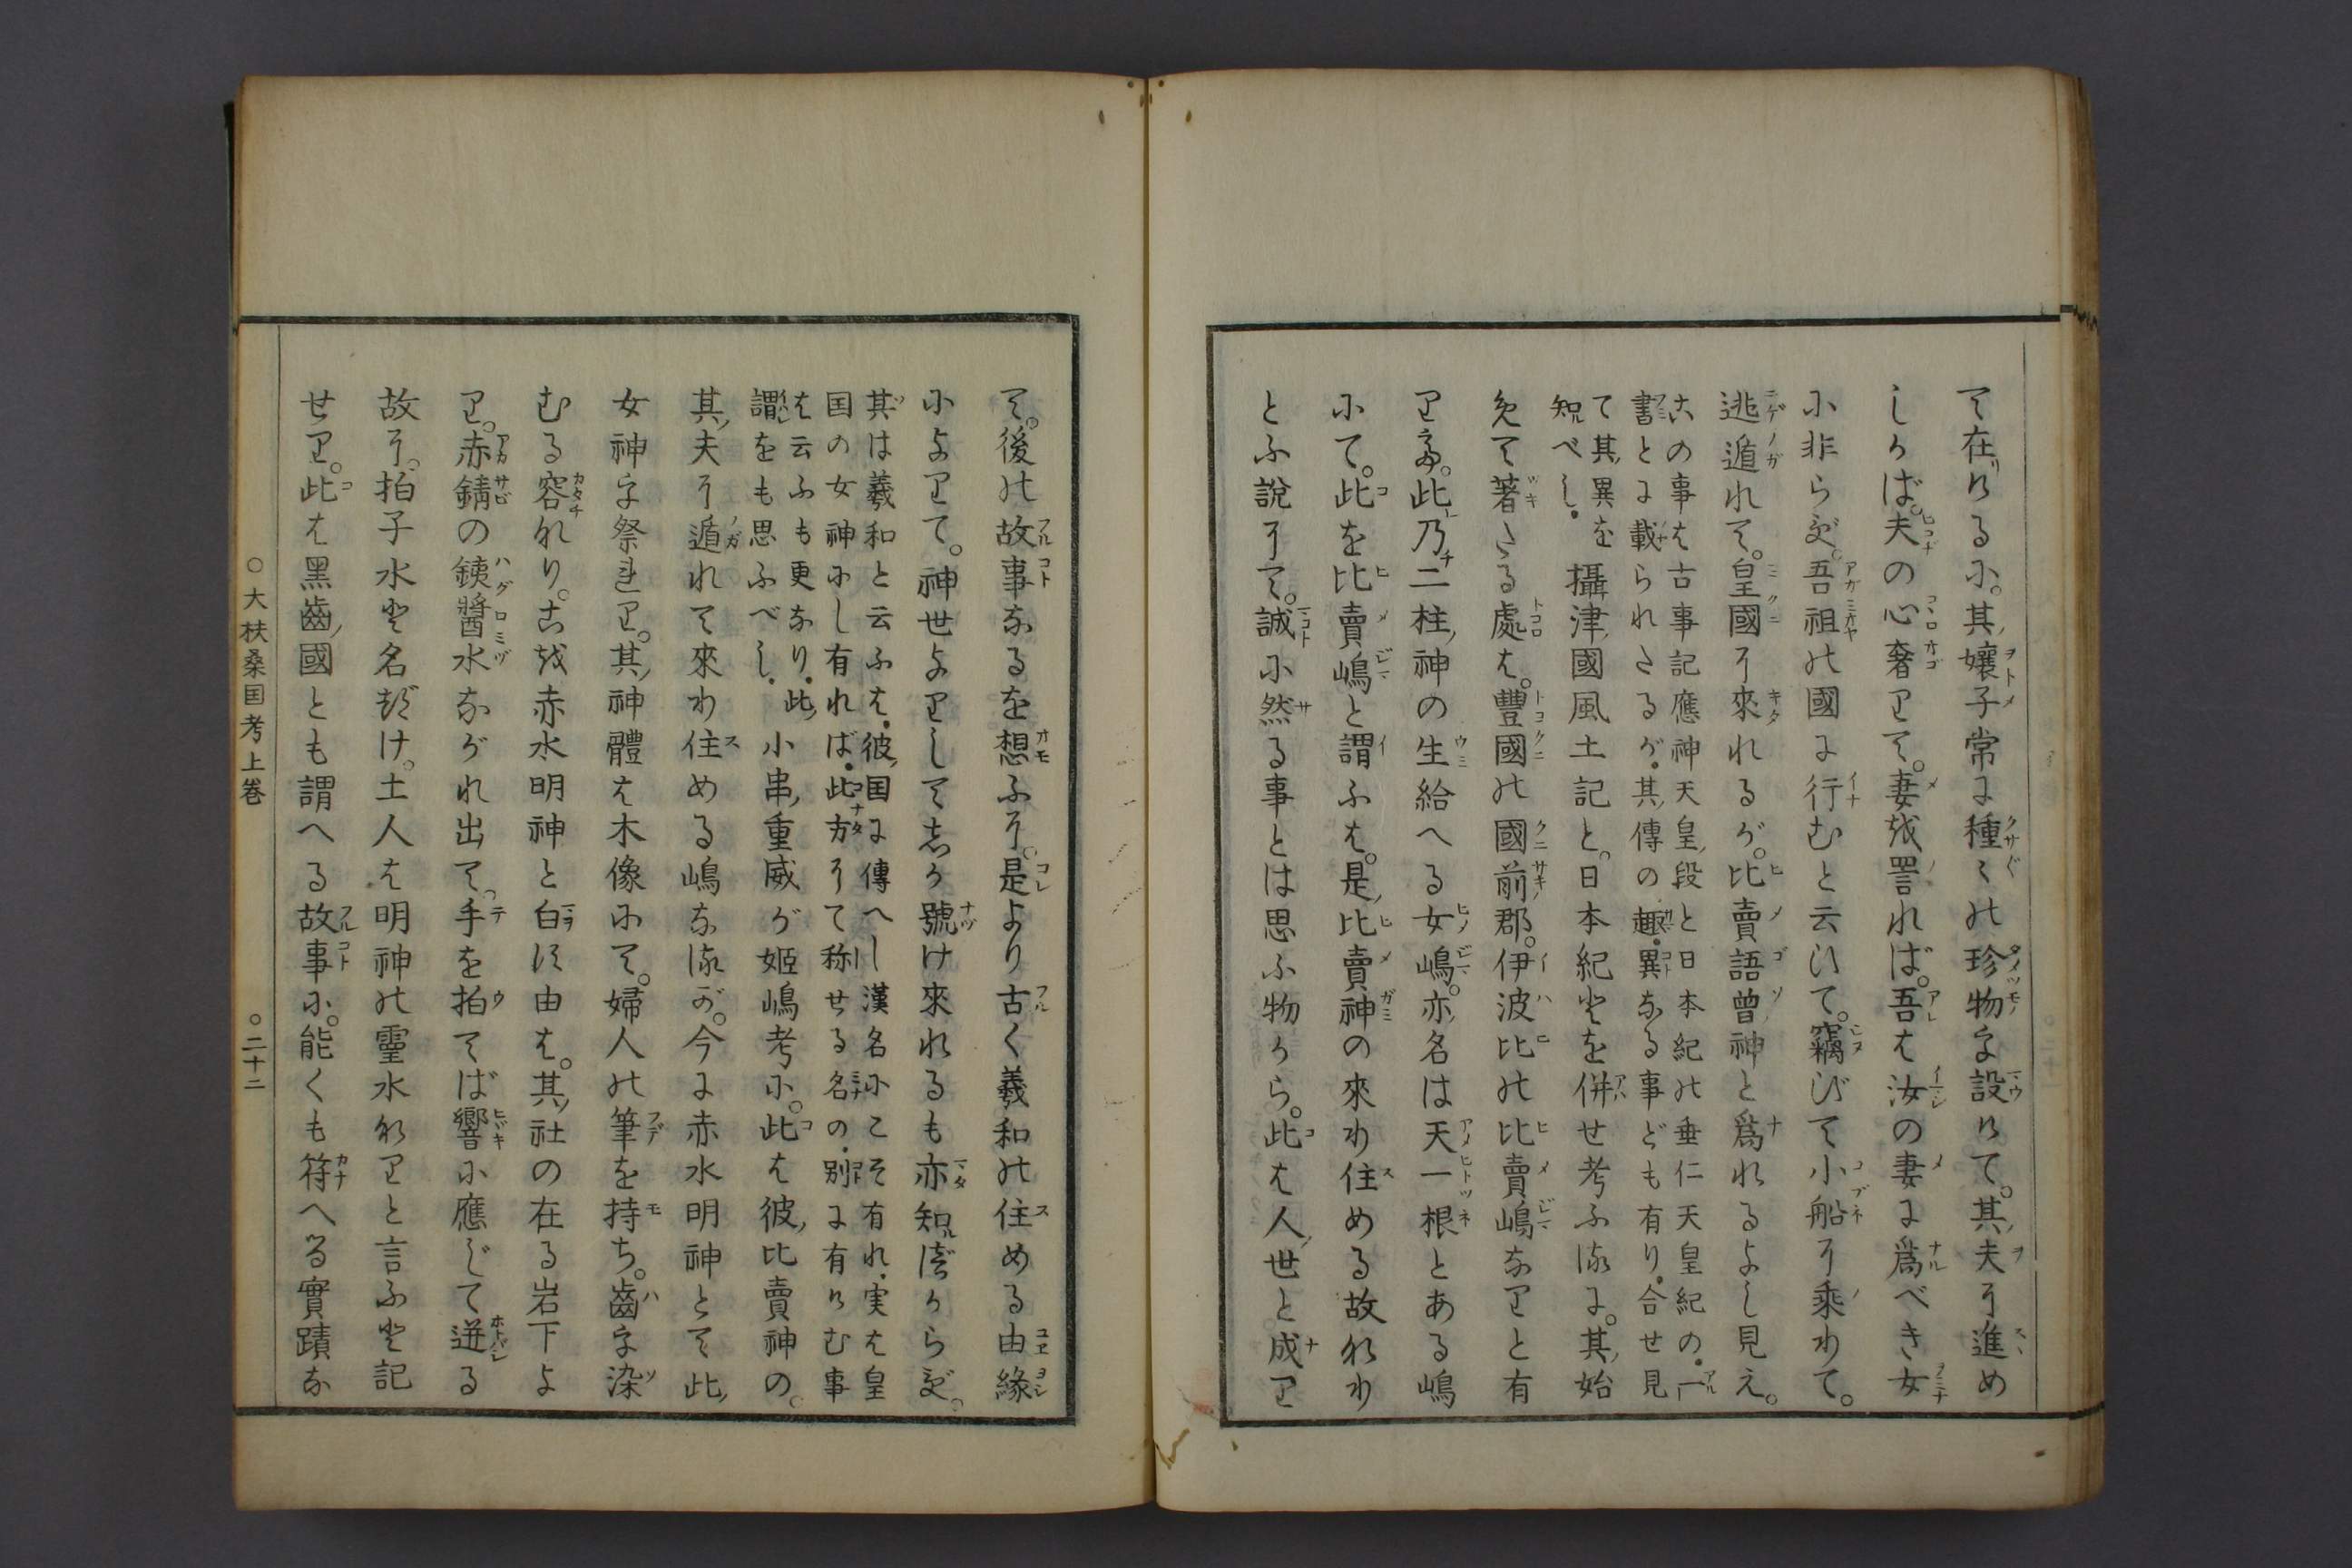 て在けるに。其ノ孃子常に種〻の珍物を設けて。其ノ夫に進め
しかば。夫の心奢りて。妻を詈れば。吾は汝の妻に爲べき女
に非らず。吾祖の國に行むと云ひて。竊びて小船に乘りて。
逃遁れて。皇國に來れるが。比賣語曾ノ神と爲れるよし見え。
この事は古事記應神天皇ノ段と日本紀の垂仁天皇紀の一
書とに載られたるが。其ノ傳の趣。異なる事ども有り。合せ見
て其ノ異を
知べし。
攝津ノ國風土記と。日本紀とを併せ考ふるに。其ノ始
免て著たる處は。豐國の國前ノ郡。伊波比の比賣嶋なりと有
り。此ノ乃チ二柱ノ神の生給へる女嶋。亦ノ名は天一根とある嶋
にて。此を比賣嶋と謂ふは。是ノ比賣神の來り住める故なり
とふ說にて。誠に然る事とは思ふ物から。此は人ノ世と成り
て。後の故事なるを想ふに。是より古く羲和の住める由緣
によりて。神世よりしてしか號け來れるも亦知べからず。
其は羲和と云ふは。彼ノ国に傳へし漢名にこそ有れ。実は皇
国の女神にし有れば。此方にて称せる名の。別に有けむ事
は云ふも更なり。此ノ
謂をも思ふべし。
小串ノ重威が姬嶋考に。此は彼ノ比賣神の。
其ノ夫に遁れて來り住める嶋なるが。今に赤水明神とて此ノ
女神を祭れり。其ノ神體は木像にて。婦人の筆を持ち。齒を染
むる容なり。さを赤水明神と白す由は。其ノ社の在る岩下よ
り。赤錆の鐵醬水ながれ出て。手を拍てば響に應じて迸る
故に。拍子水と名づけ。土人は明神の靈水なりと言ふと記
せり。此は黑齒ノ國とも謂へる故事に。能くも符へる實蹟な
○大扶桑国考上巻
○二十二